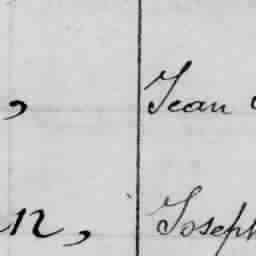 , Jean
n, Joseph